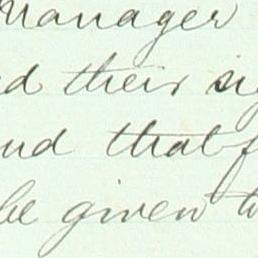 Manager
d their sig
nd that f
be given t